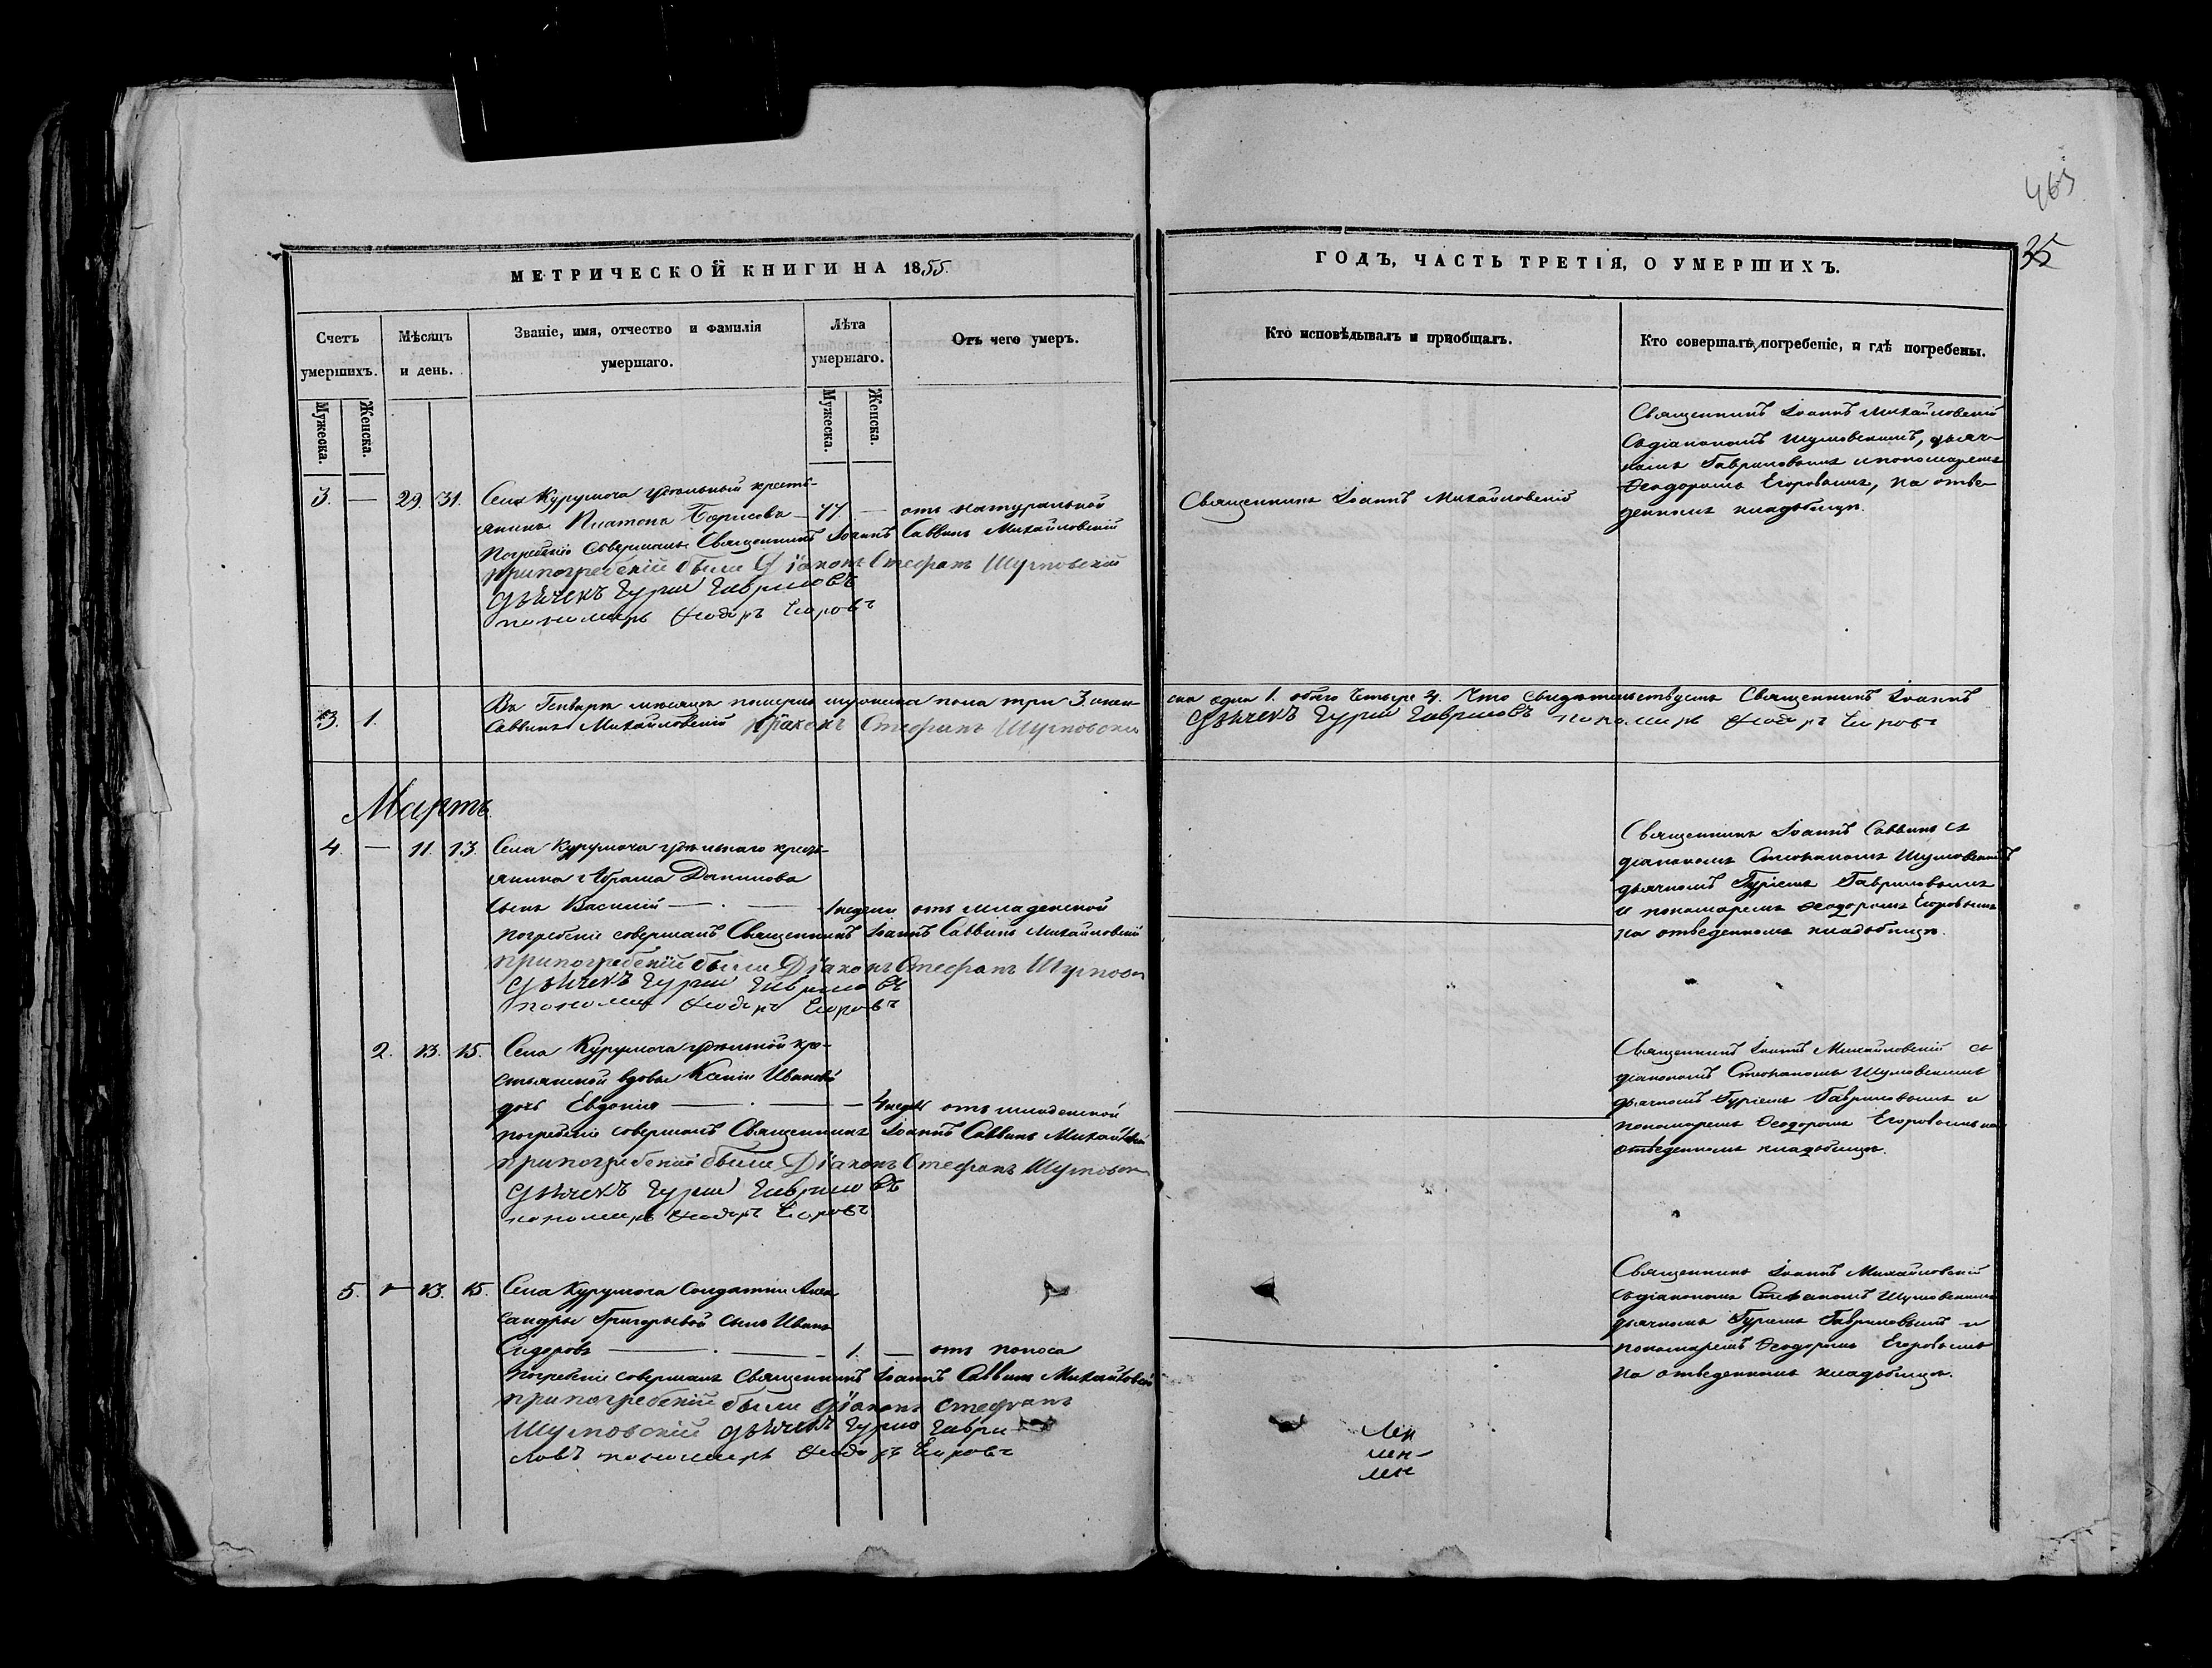 465
35
МЕТРИЧЕСКОЙ КНИГИ НА 1855.
ГОДЪ, ЧАСТЬ ТРЕТІЯ, О УМЕРШИХЪ.
Счетъ умершихъ.
Мѣсяцъ и день.
Званіе, имя, отчество и фамилія умершаго.
Лѣта умершаго.
Отъ чего умеръ.
Кто исповѣдывалъ и пріобщалъ.
Кто совершалъ погребеніе, и гдѣ погребены.
Мужеска. Женска.
Мужеска. Женска.
3. — 29. 31. Села Курумоча удѣльный кресть-
янинъ Платонъ Борисовъ — 77 — отъ натуральной
Погребеніе совершалъ Священникъ Іоаннъ Саввинъ Михайловскій
припогребеніи были Діаконъ Стефанъ Шумовскій
Дьячекъ Гурій Гавриловъ
пономарь Феодоръ Егоровъ
Священникъ Іоаннъ Михайловскій
Священникъ Іоаннъ Михайловскій
съ діакономъ Шумовскимъ, дьяч-
комъ Гавриловымъ и пономаремъ
Ѳеодоромъ Егоровымъ, на отве-
денномъ кладбищѣ.
3. 1. Въ Генварѣ мѣсяцѣ померло мужеска пола три 3. жен-
ска одна 1. обоего четыре 4. Что свидѣтельствуемъ Священникъ Іоаннъ
Саввинъ Михайловскій Діаконъ Стефанъ Шумовскій
Дьячекъ Гурій Гавриловъ пономарь Феодоръ Егоровъ
Мартъ.
4. — 11. 13. Села Курумоча удѣльнаго кресть-
янина Абрама Данилова
сынъ Василій — 1 недели отъ младенской
погребеніе совершалъ Священникъ Іоаннъ Саввинъ Михайловскій
припогребеніи были Діаконъ Стефанъ Шумовск
Дьячекъ Гурій Гавриловъ
пономар Феодоръ Егоровъ
Священникъ Іоаннъ Саввинъ съ
діакономъ Стефаномъ Шумовскимъ
дьячкомъ Гуріемъ Гавриловымъ
и пономаремъ Ѳеодоромъ Егоровымъ
на отведенномъ кладбищѣ.
2. 13. 15. Села Курумоча удѣльной кре-
стьянской вдовы Ксеніи Ивановой
дочь Евдокія — 4 недѣл отъ младенской
погребеніе совершалъ Священникъ Іоаннъ Саввинъ Михайловскій
припогребеніи были Діаконъ Стефанъ Шумовск
Дьячекъ Гурій Гавриловъ
пономарь Феодоръ Егоровъ
Священникъ Іоаннъ Михайловскій съ
діакономъ Стефаномъ Шумовскимъ
дьячкомъ Гуріемъ Гавриловымъ и
пономаремъ Ѳеодоромъ Егоровымъ на
отведенномъ кладбищѣ.
5. — 13. 15. Села Курумоча Солдатки Алек-
сандры Григорьевой сынъ Иванъ
Сидоровъ — 1. — отъ поноса
погребеніе совершалъ Священникъ Іоаннъ Саввинъ Михайловскій
припогребеніи были діаконъ Стефанъ
Шумовскій дьячекъ Гурій Гаври
ловъ пономарь Феодоръ Егоровъ
Священникъ Іоаннъ Михайловскій
съ діакономъ Стефаномъ Шумовскимъ
дьячкомъ Гуріемъ Гавриловымъ и
пономаремъ Ѳеодоромъ Егоровымъ
на отведенномъ кладбищѣ.